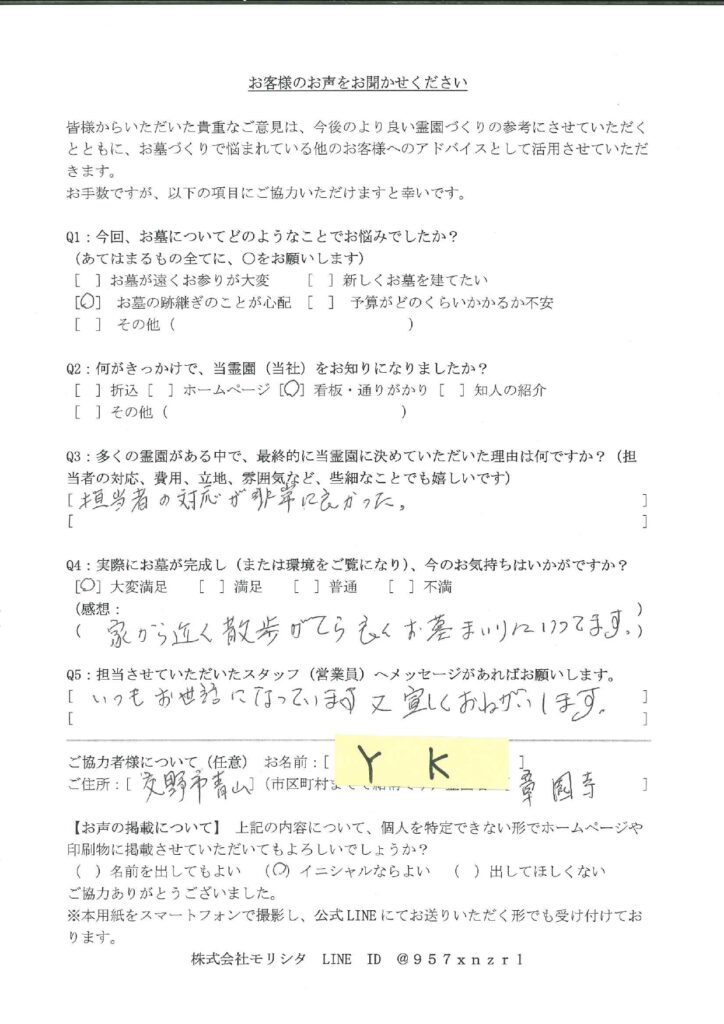 お客様のお声をお聞かせください
皆様からいただいた貴重なご意見は、今後のより良い霊園づくりの参考にさせていただく
とともに、お墓づくりで悩まれている他のお客様へのアドバイスとして活用させていただ
きます。
お手数ですが、以下の項目にご協力いただけますと幸いです。
Q1：今回、お墓についてどのようなことでお悩みでしたか？
（あてはまるもの全てに、〇をお願いします）
[ ] お墓が遠くお参りが大変 [ ] 新しくお墓を建てたい
[〇] お墓の跡継ぎのことが心配 [ ] 予算がどのくらいかかるか不安
[ ] その他（ ）
Q2：何がきっかけで、当霊園（当社）をお知りになりましたか？
[ ] 折込 [ ] ホームページ [〇] 看板・通りがかり [ ] 知人の紹介
[ ] その他（ ）
Q3：多くの霊園がある中で、最終的に当霊園に決めていただいた理由は何ですか？（担
当者の対応、費用、立地、雰囲気など、些細なことでも嬉しいです）
[ 担当者の対応が非常に良かった。 ]
[ ]
Q4：実際にお墓が完成し（または環境をご覧になり）、今のお気持ちはいかがですか？
[〇] 大変満足 [ ] 満足 [ ] 普通 [ ] 不満
（感想： ）
（ 家から近く散歩がてら良くお墓まいりにいってます。）
Q5：担当させていただいたスタッフ（営業員）へメッセージがあればお願いします。
[ いつもお世話になっています又宜しくおねがいします。 ]
[ ]
ご協力者様について（任意） お名前：[ Y K ]
ご住所：[ 交野市青山 ]（市区町村まで [ 章園寺 ]
【お声の掲載について】 上記の内容について、個人を特定できない形でホームページや
印刷物に掲載させていただいてもよろしいでしょうか？
（ ）名前を出してもよい （〇）イニシャルならよい （ ）出してほしくない
ご協力ありがとうございました。
※本用紙をスマートフォンで撮影し、公式LINEにてお送りいただく形でも受け付けてお
ります。
株式会社モリシタ LINE ID @957xnzrl